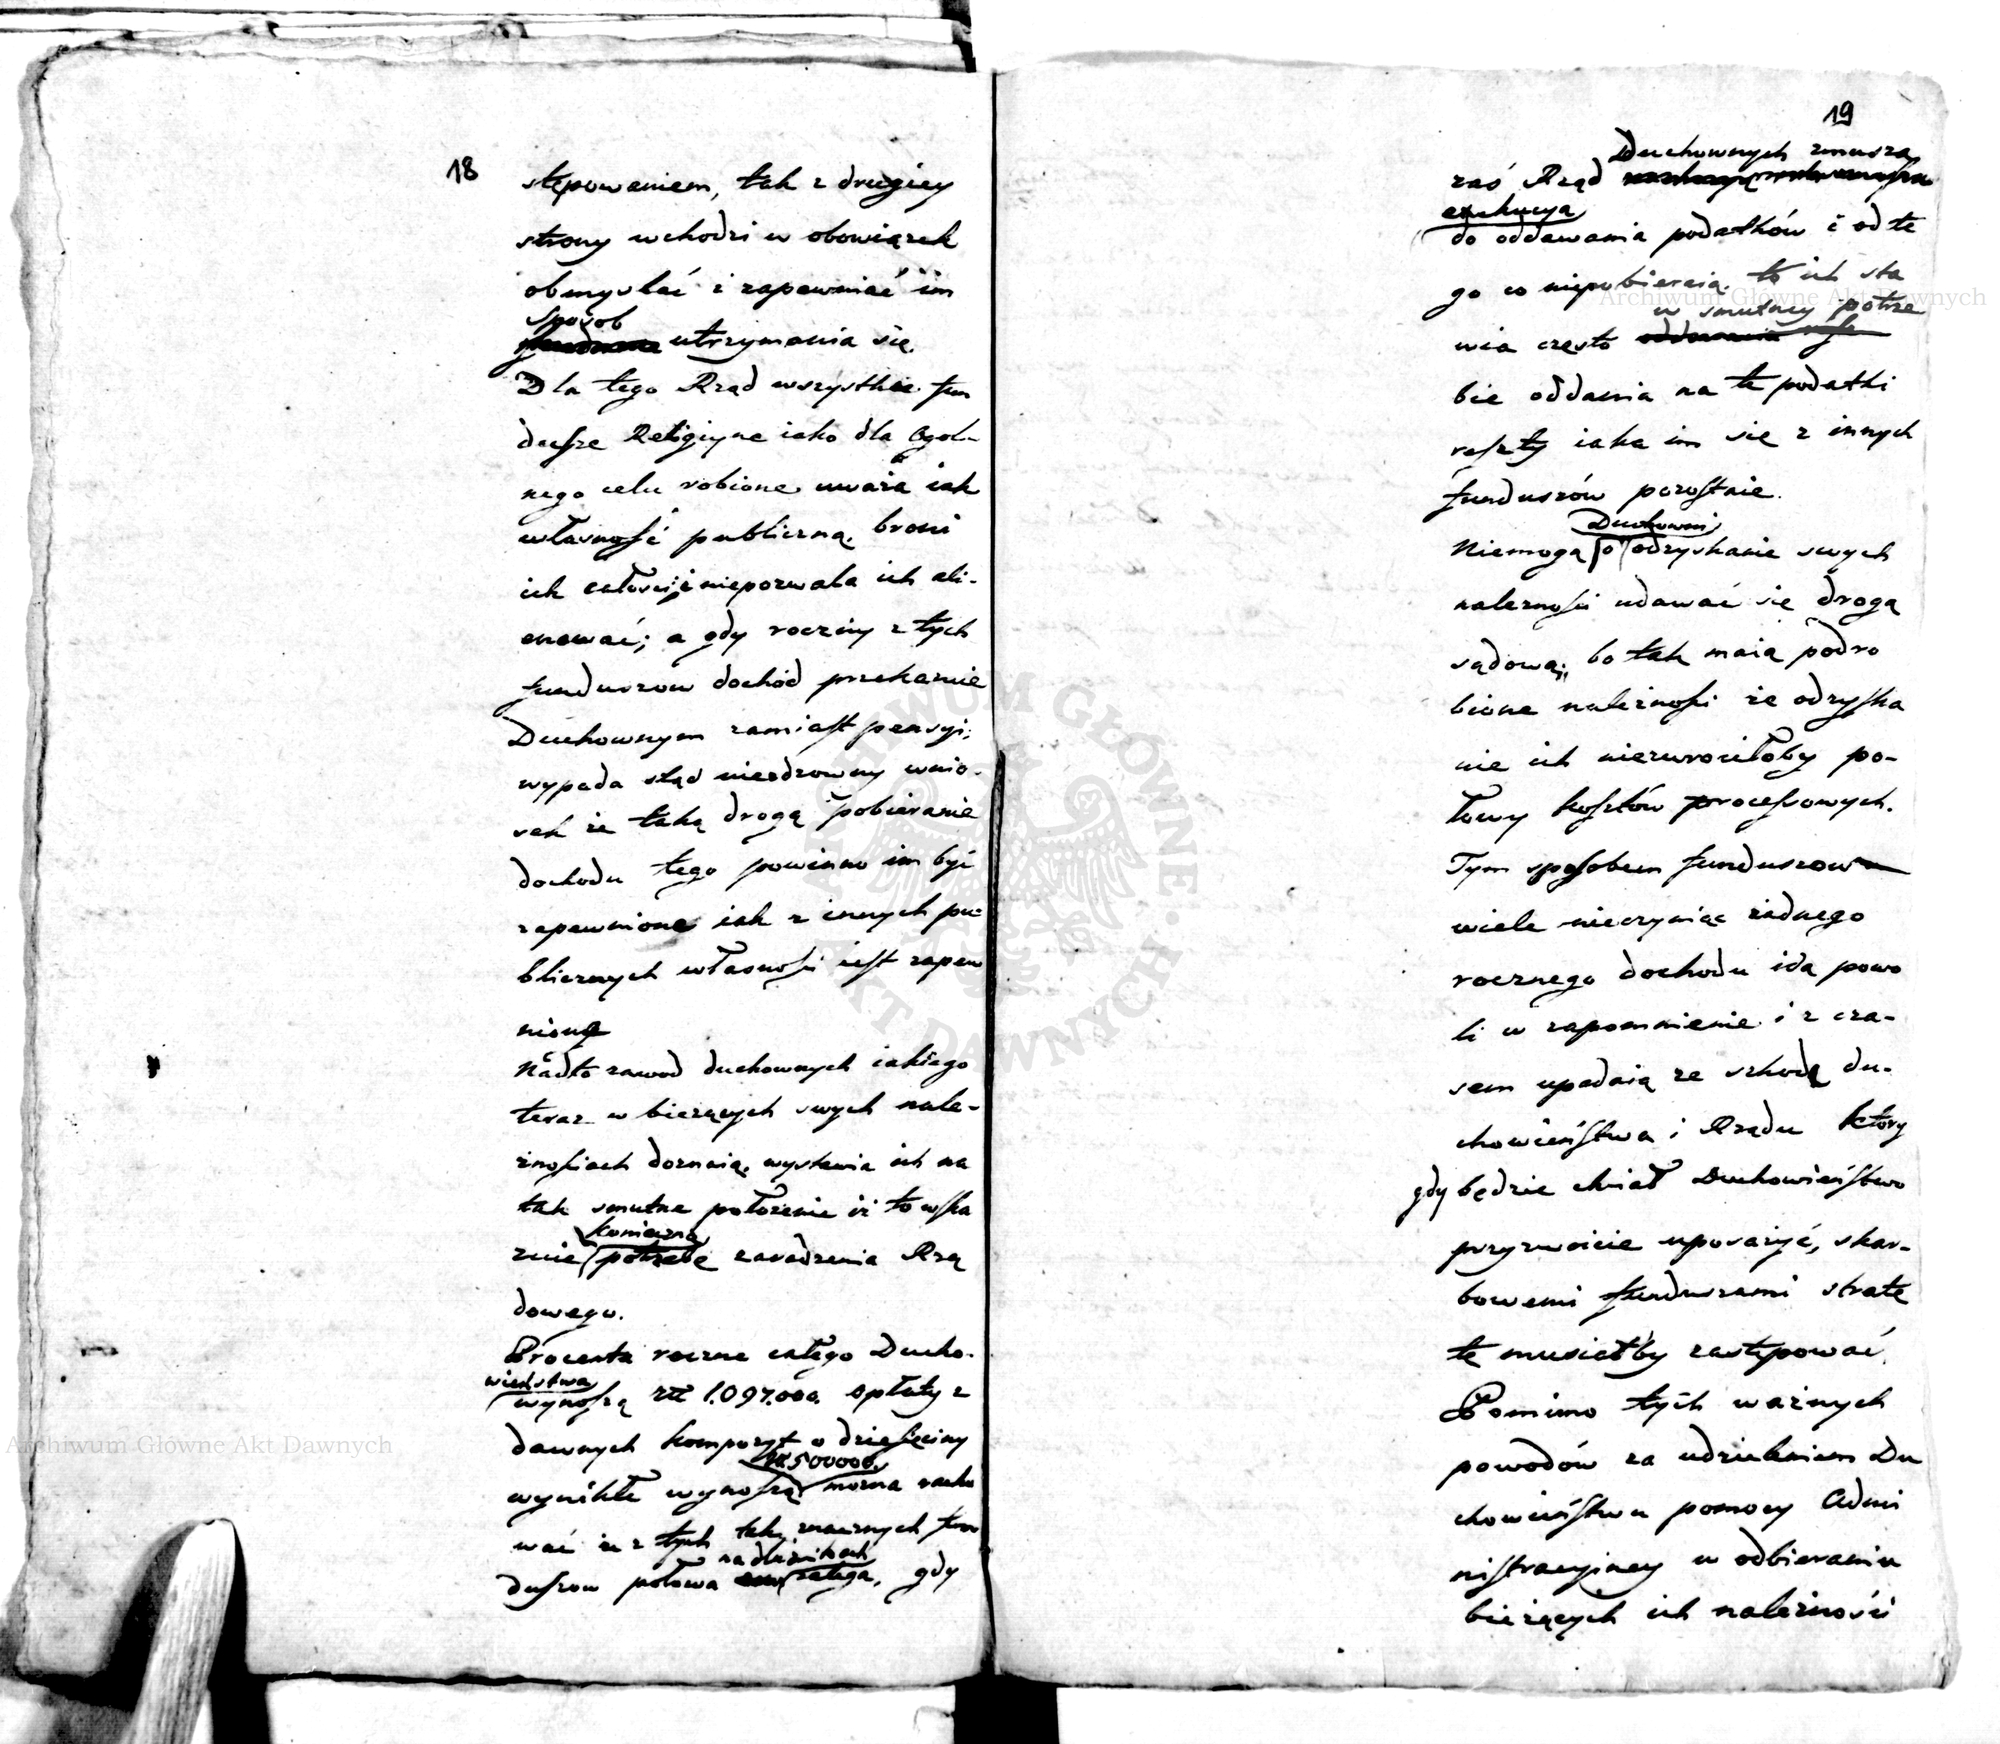 18
stępowaniem, tak z drugiey
strony wchodzi w obowiązek
obmyslać i zapewniać im
sposob
utrzymania się.
Dla tego Rząd wszystkie fun
dusze Religiyne iako dla Ogol-
nego celu robione uważa iak
własność publiczną, broni
ich całości; i niepozwala ich ali-
enować; a gdy roczny z tych
funduszow dochód przekaznie
Duchownym zamiast pensyi;
wypada stąd niezdrowny wnio-
sek że taką drogą pobieranie
dochodu tego powinno im być
zapewnione iak z innych pu-
blicznych własności iest zapew
nione
Nadto zawod duchownych iakiego
teraz w bieżących swych nale-
żnościach doznaią, wystawia ich na
tak smutne położenie iż to wska
konieczną
znie potrzebę zaradzenia Rzą
dowego.
Procenta roczne całego Ducho-
wieństwa
wynoszą zł 1.097.000. opłaty z
dawnych kompozyt o dziesięciny
zł 500000.
wynikłe wynoszą można racho
wać że z tych tak znacznych fun
nadłużnikach
duszow połowa zalega, gdy
19
Duchownych zmusza
zaś Rząd
exekucya
do oddawania podatków i od te
go co niepobieraią, to ich sta
w smutney potrze
wia często
bie oddania na te podatki
reszty iaka im się z innych
funduszów pozostaie.
Duchowni
Niemogą o odzyskanie swych
należności udawać się drogą
sądową; bo tak maią podro
bione należności że odzyska
nie ich niezwrociłoby po-
łowy kosztów processowych.
Tym sposobem funduszow
wiele nieczyniąc żadnego
rocznego dochodu idą powo
li w zapomnienie i z cza-
sem upadaią ze szkodą du-
chowieństwa i Rządu który
gdy będzie chciał Duchowieństwo
przyzwoicie uposażyć, skar-
bowemi funduszami stratę
tę musiałby zastępować.
Pomimo tych ważnych
powodów za udzieleniem Du
chowieństwu pomocy Admi
nistracyiney w odbieraniu
bieżących ich należności
Archiwum Główne Akt Dawnych
Archiwum Główne Akt Dawnych
ARCHIWUM GŁÓWNE AKT DAWNYCH